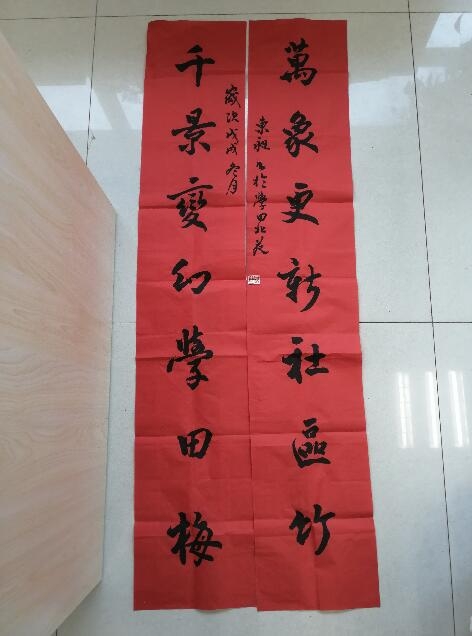 萬象更新社區竹
千景變幻學田梅
歲次戊戌冬月
東祖
於學田北苑